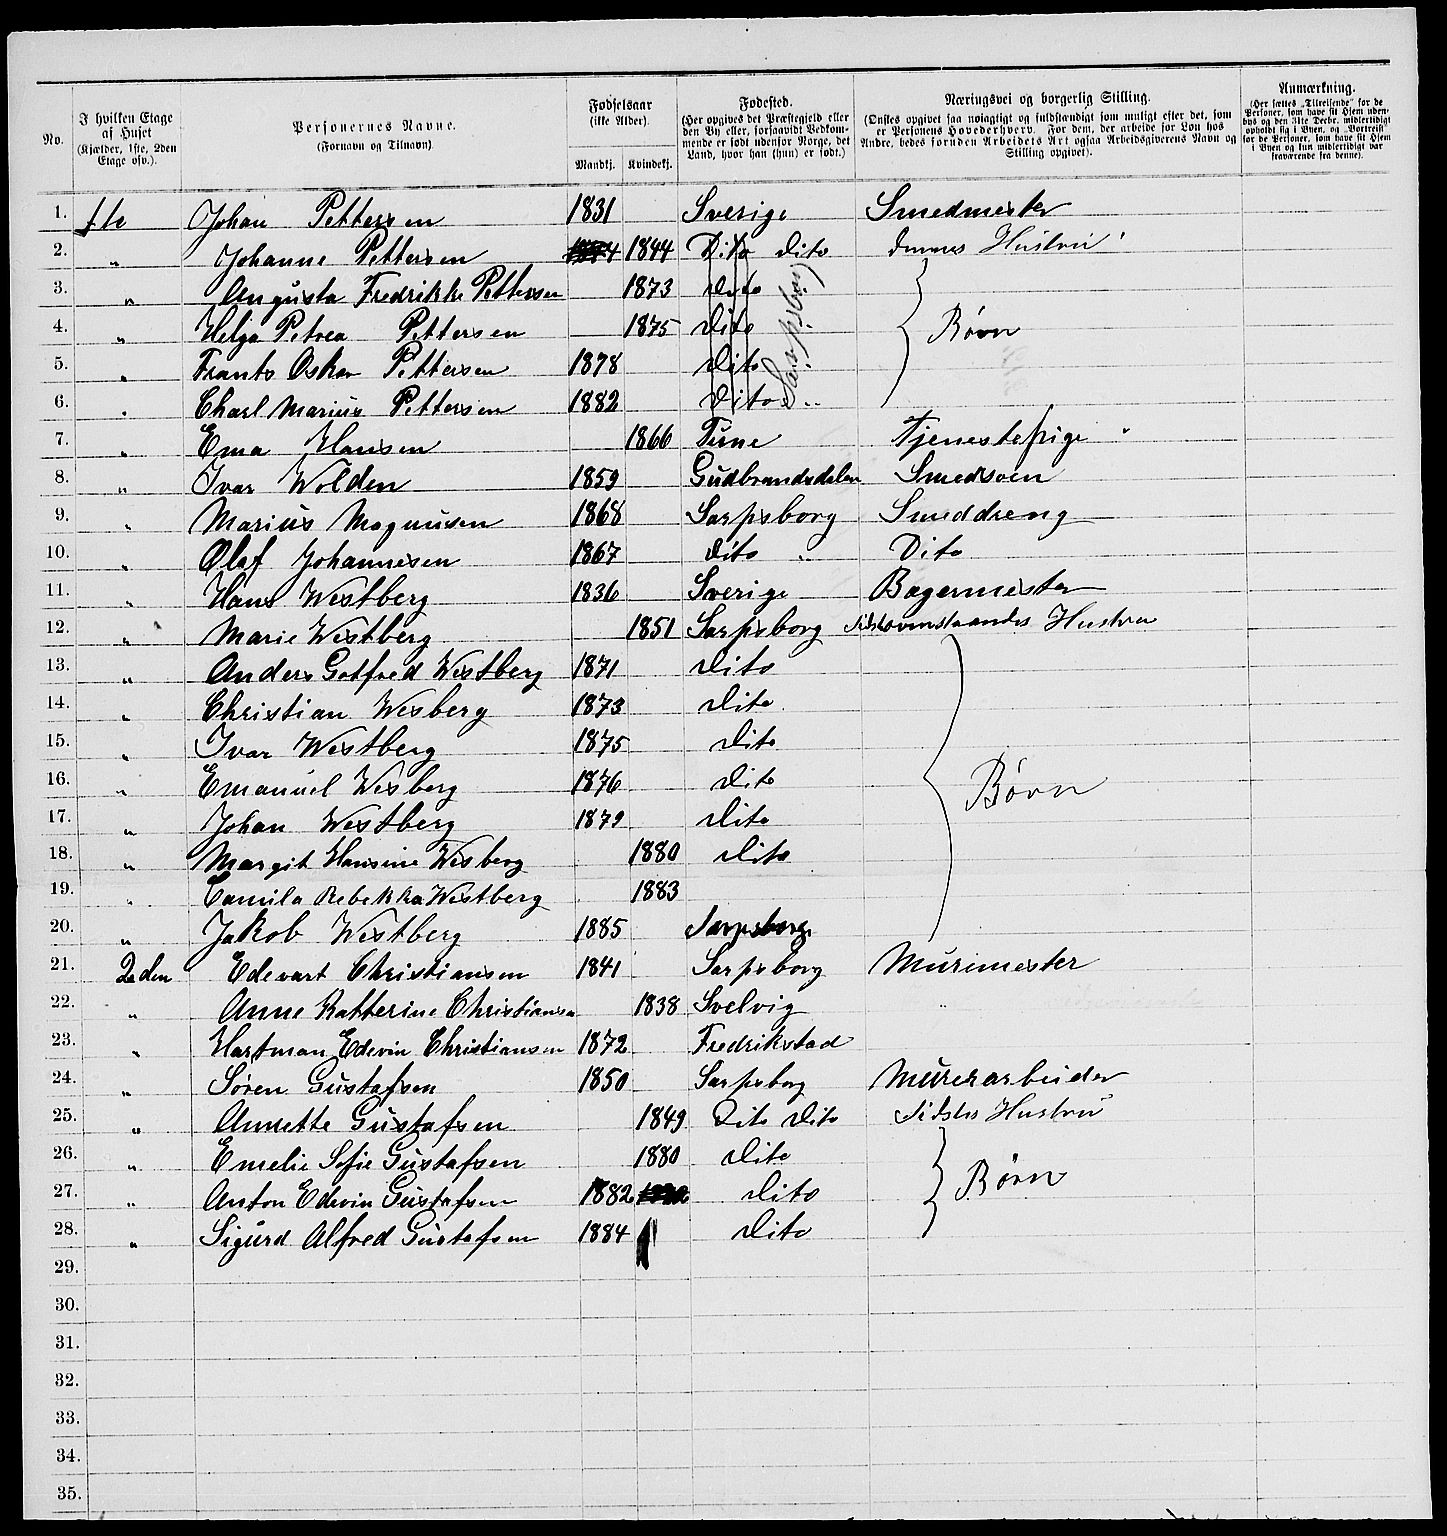 No.
I hvilken Etage af Huset (Kjælder, 1ste, 2den Etage osv.).
Personernes Navne. (Fornavn og Tilnavn)
Fødselsaar (ikke Alder). Mandkj. Kvindekj.
Fødested. (Her opgives det Præstegjeld eller den By eller, forsaavidt Vedkommende er født udenfor Norge, det Land, hvor han (hun) er født.)
Næringsvei og borgerlig Stilling. (Ønskes opgivet saa nøiagtigt og fuldstændigt som muligt efter det, som er Personens Hovederhverv. For dem, der arbeide for Løn hos Andre, bedes foruden Arbeidets Art ogsaa Arbeidsgiverens Navn og Stilling opgivet).
Anmærkning. (Her sættes „Tilreisende" for de Personer, som have sit Hjem udenbys og den 31te Decbr. midlertidigt opholdt sig i Byen, og „Bortreist" for de Personer, som have sit Hjem i Byen og kun midlertidigt var fraværende fra denne).
1. Johan Pettersen 1831 Sverige Smedmester
2. „ Johanne Pettersen 1844 Dito Dito dennes Hustru
3. „ Angusta Fredrikke Pettersen 1873 Dito
4. „ Helga Petrea Pettersen 1875 Dito Sarpsborg Børn
5. „ Frants Oskar Pettersen 1878 Dito
6. „ Charl Marius Pettersen 1882 Dito
7. „ Ema Hansen 1866 Tune Tjenestepige
8. „ Ivar Wolden 1859 Gudbrandsdalen Smedsven
9. „ Marius Magnusen 1868 Sarpsborg Smeddreng
10. „ Olaf Johannesen 1867 Dito Dito
11. „ Hans Westberg 1836 Sverige Bagermester
12. „ Marie Westberg 1851 Sarpsborg Hustru
13. „ Anders Gotfred Westberg 1871 Dito
14. „ Christian Wesberg 1873 Dito
15. „ Ivar Westberg 1875 Dito
16. „ Emanuel Wesberg 1876 Dito Børn
17. „ Johan Westberg 1879 Dito
18. „ Margit Hansine Wesberg 1880 Dito
19. „ Camila Rebekka Westberg 1883
20. „ Jakob Westberg 1885 Sarpsborg
21. 2den Edevart Christiansen 1841 Sarpsborg Murmester
22. „ Anne Katterine Christiansen 1838 Svelvig
23. „ Hartman Edevin Christiansen 1872 Fredrikstad
24. „ Søren Gustafsen 1850 Sarpsborg Murerarbeider
25. „ Annette Gustafsen 1849 Dito Dito Sidstes Hustru
26. „ Emelie Sofie Gustafsen 1880 Dito
27. „ Anton Edevin Gustafsen 1882 Dito Børn
28. „ Sigurd Alfred Gustafsen 1884 Dito
29.
30.
31.
32.
33.
34.
35.